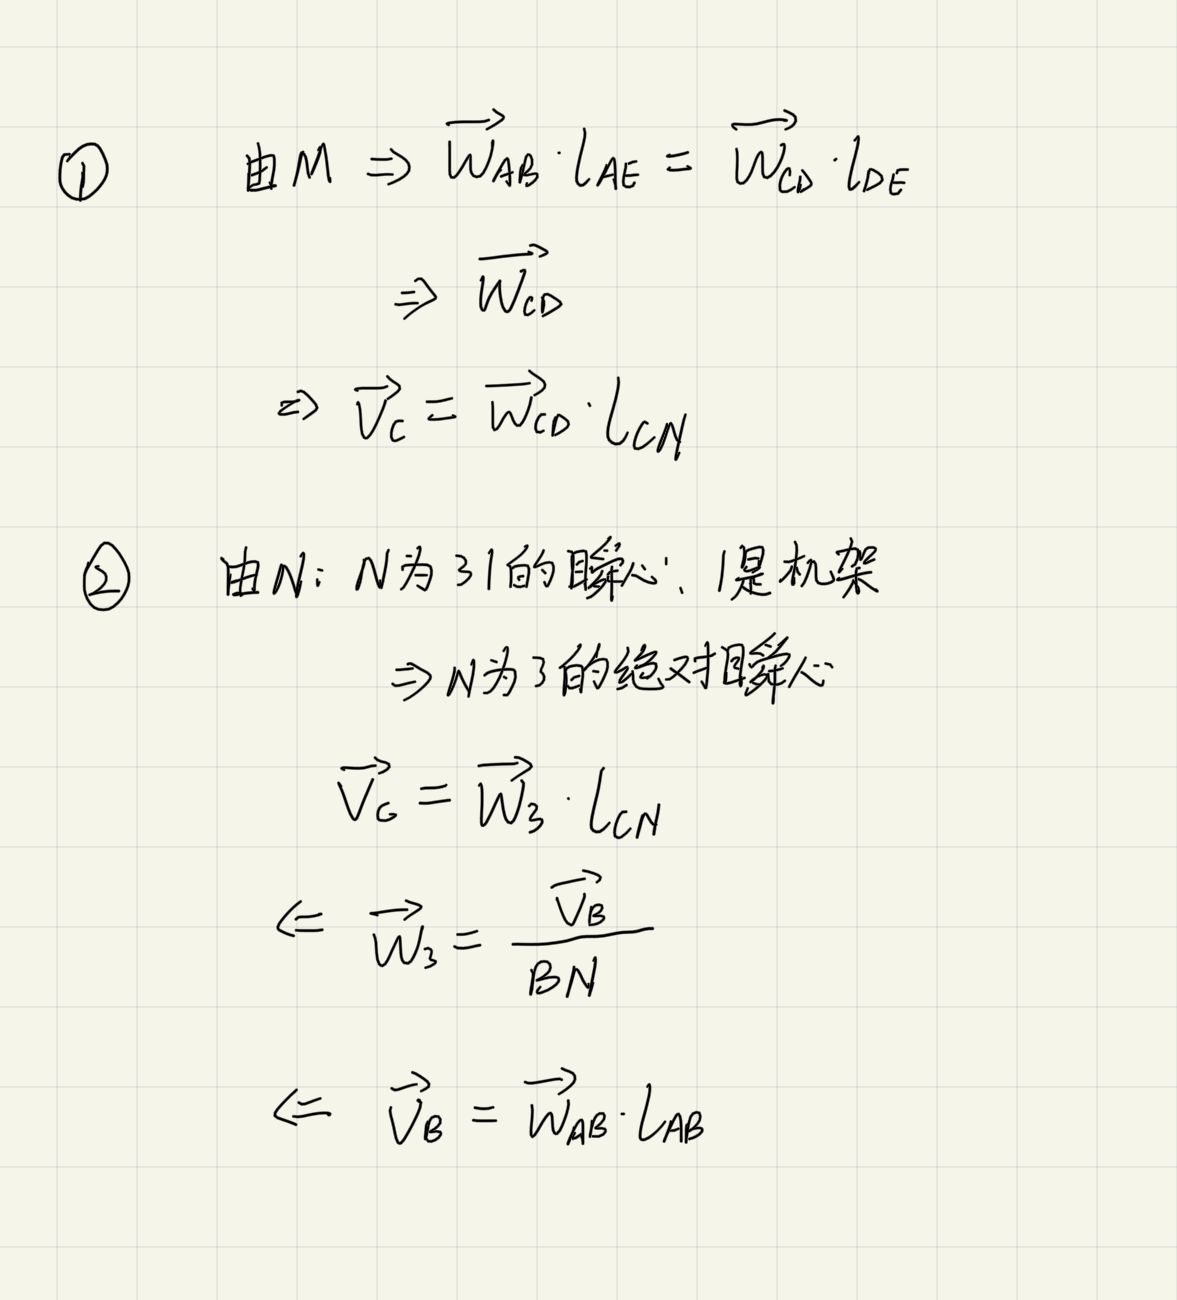 ① 由M ⇒ \overrightarrow{W_{AB}} · l_{AE} = \overrightarrow{W_{CD}} · l_{DE}
⇒ \overrightarrow{W_{CD}}
⇒ \overrightarrow{V_C} = \overrightarrow{W_{CD}} · l_{CN}
② 由N: N为31的瞬心, 1是机架
⇒ N为3的绝对瞬心
\overrightarrow{V_C} = \overrightarrow{W_3} · l_{CN}
⇐ \overrightarrow{W_3} = \frac{\overrightarrow{V_B}}{BN}
⇐ \overrightarrow{V_B} = \overrightarrow{W_{AB}} · l_{AB}